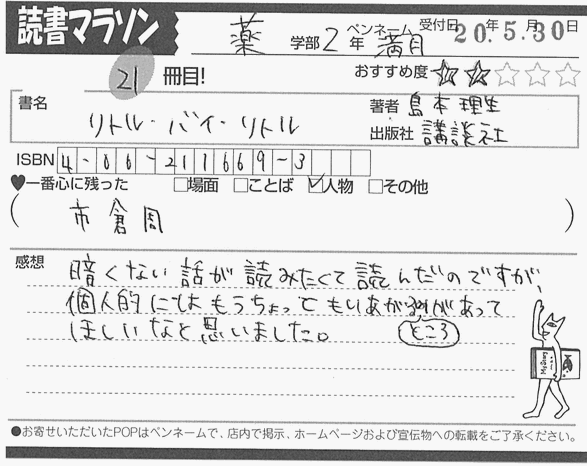 読書マラソン
薬 学部 2 年 ペンネーム 満月 受付日 20.年5.月30日
21 冊目! おすすめ度 ★★☆☆☆
書名 リトル・バイ・リトル
著者 島本理生
出版社 講談社
ISBN 4-06-211669-3
♥一番心に残った □場面 □ことば ☑人物 □その他
(市倉周)
感想 暗くない話が読みたくて読んだのですが、
個人的にはもうちょっともりあがるところがあって
ほしいなと思いました。
●お寄せいただいたPOPはペンネームで、店内で掲示、ホームページおよび宣伝物への転載をご了承ください。